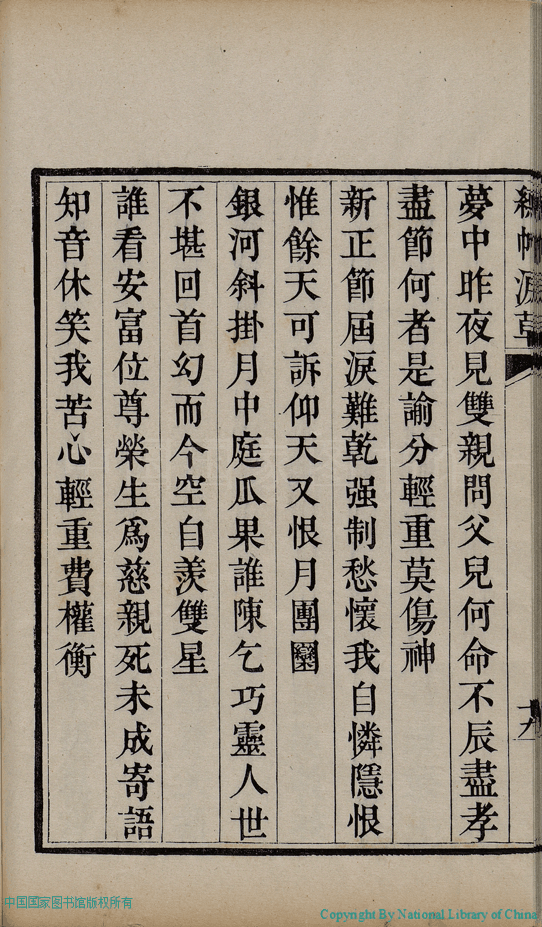 夢中昨夜見雙親問父兒何命不辰盡孝
盡節何者是諭分輕重莫傷神
新正節屆淚難乾强制愁懷我自憐隱恨
惟餘天可訴仰天又恨月團圞
銀河斜掛月中庭瓜果誰陳乞巧靈人世
不堪回首幻而今空自羨雙星
誰看安富位尊榮生爲慈親死未成寄語
知音休笑我苦心輕重費權衡
中国国家图书馆版权所有
Copyright By National Library of China